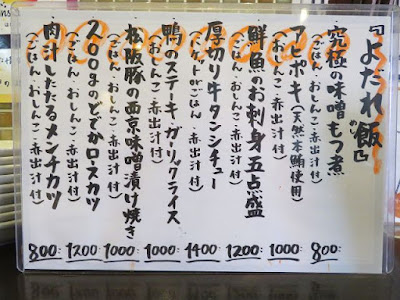 『よだれ飯』
の
究極の味噌もつ煮
(ごはん・おしんこ・赤出汁付)
800-
アヒポキ(天然本鮪使用)
(ごはん・おしんこ・赤出汁付)
1000-
鮮魚のお刺身五点盛
(ごはん・おしんこ・赤出汁付)
1200-
厚切り牛タンシチュー
1400-
鴨のステーキ・ガーリックライス
(おしんこ・赤出汁付)
1000-
松阪豚の西京味噌漬け焼き
(ごはん、おしんこ、赤出汁付)
1000-
200gのとどかロースカツ
(ごはん、おしんこ、赤出汁付)
1200-
肉汁したたるメンチカツ
(ごはん、おしんこ、赤出汁付)
800-